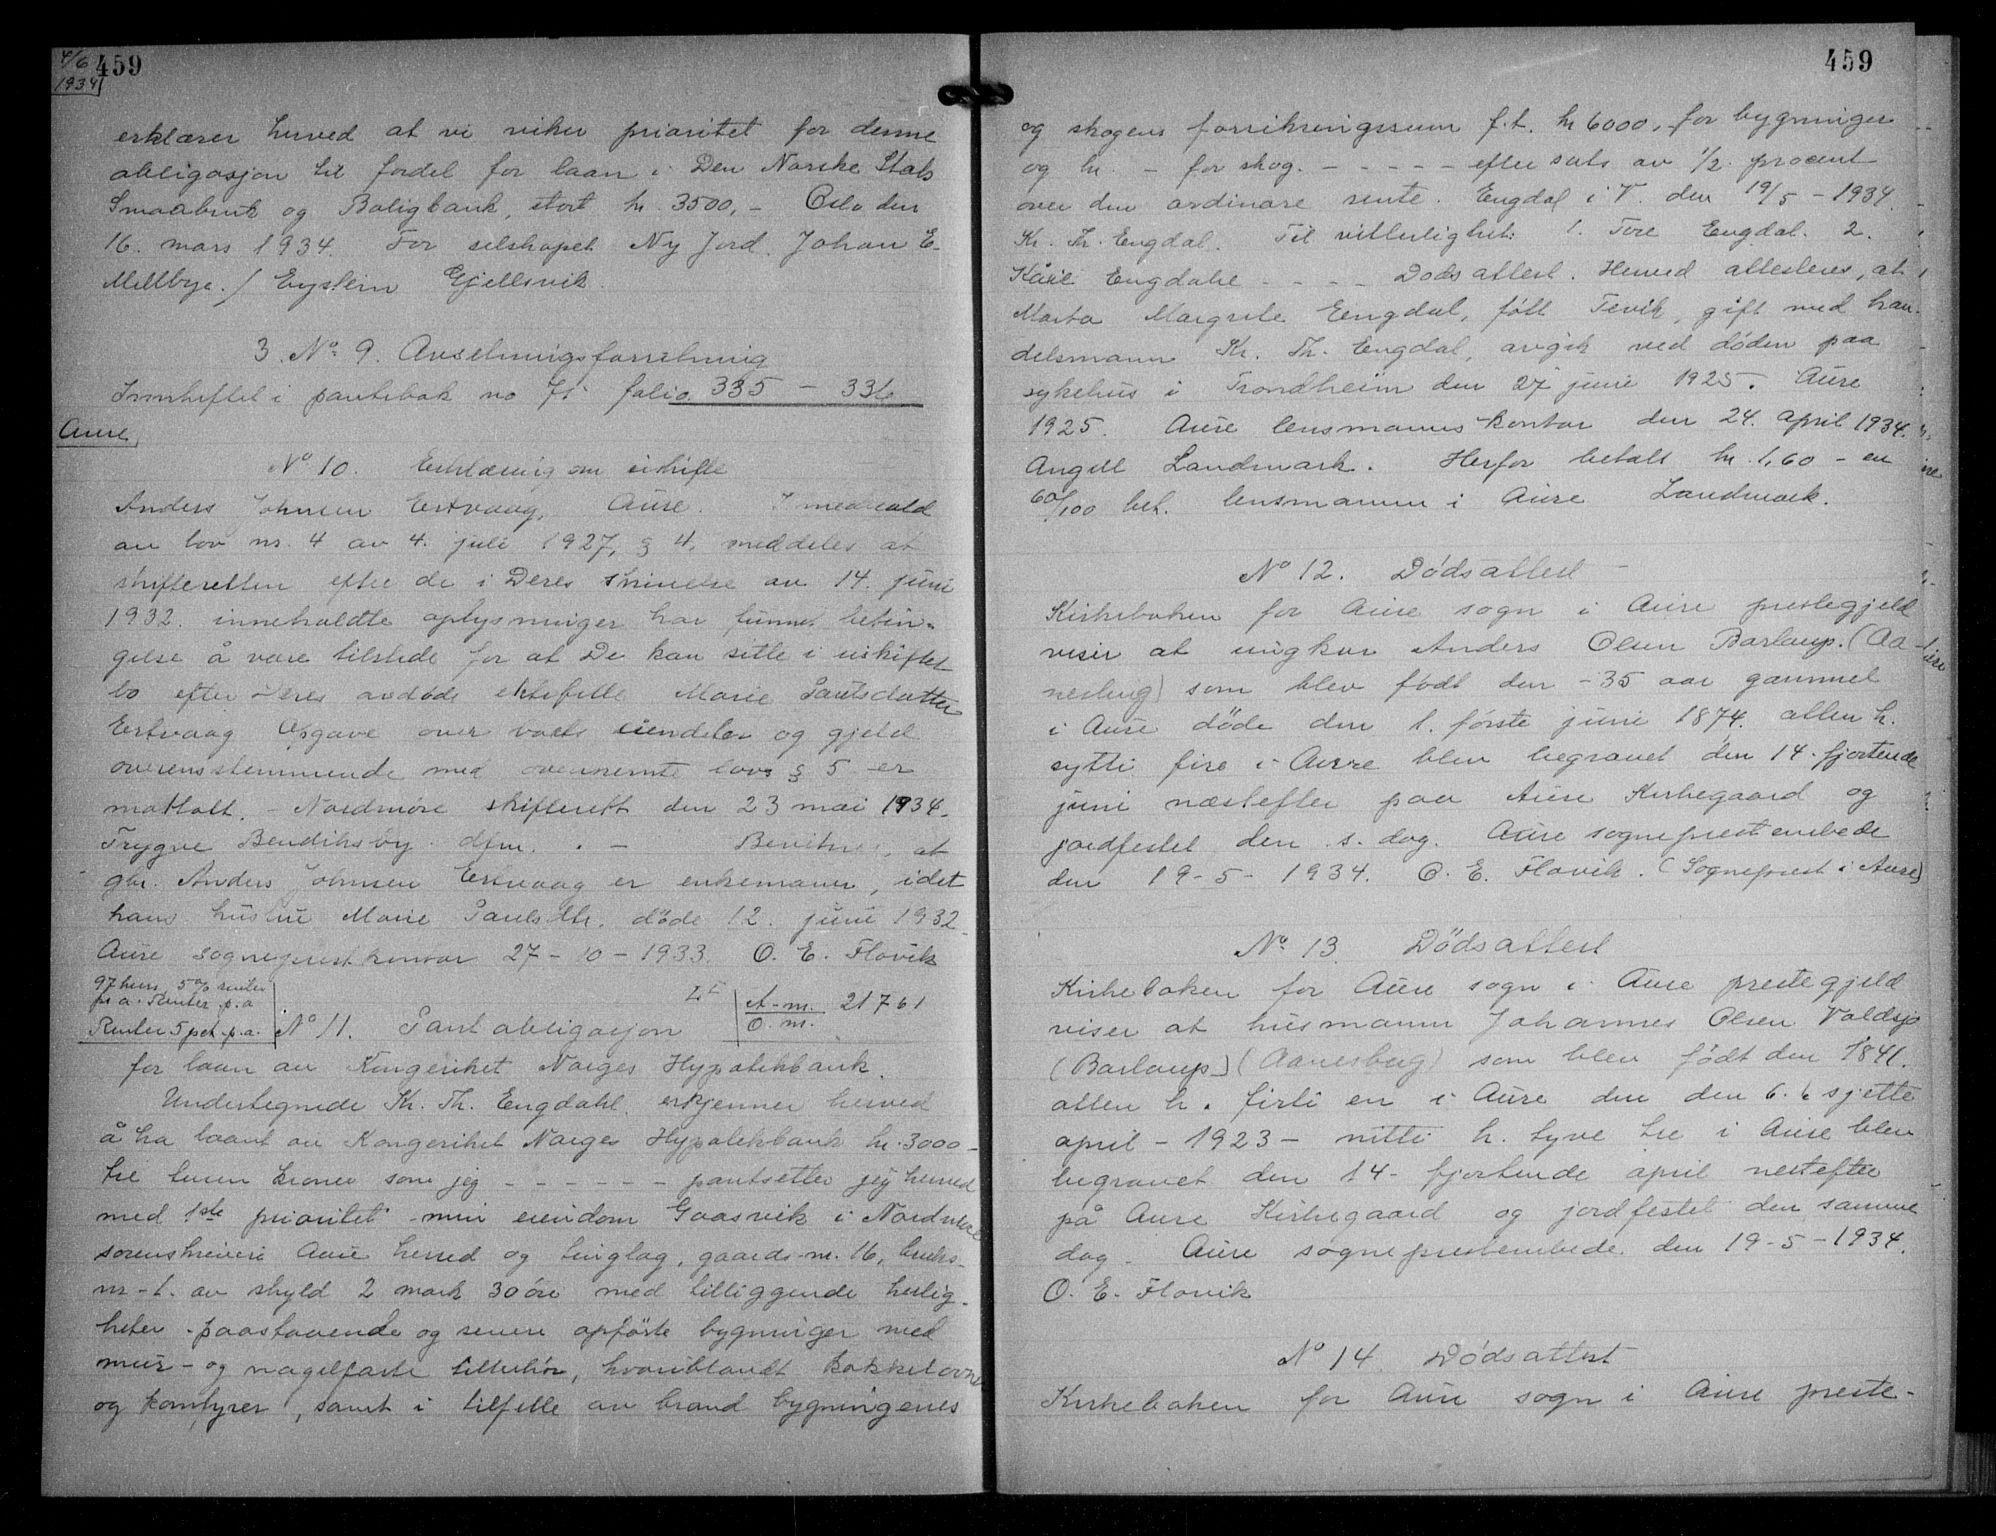 4/6
1934
459
erklærer herved at vi viker prioritet for denne
obligasjon til fordel for laan i Den Norske Stats
Smaabruk og Boligbank, stort kr. 3500,- Oslo den
16. mars 1934. For selskapet Ny Jord. Johan E.
Mellbye. / Eystein Gjellsvik.
3. No 9. Avsetningsforretning
Innheftet i pantebok no 71 folio 335 - 336
Aure,
No 10. Erklæring om uskifte
Anders Johnsen Ertvaag, Aure. I medhold
av lov nr. 4 av 4. juli 1927, § 4, meddeles at
skifteretten efter de i Deres skrivelse av 14. juni
1932. inneholdte oplysninger har funnet betin-
gelse å være tilstede for at De kan sitte i uskiftet
bo efter Deres avdøde ektefelle Marie Paulsdatter
Ertvaag Opgave over boets eiendeler og gjeld
overensstemmende med ovennemte lovs § 5 er
mottatt. - Nordmøre skifterett den 23 mai 1934.
Trygve Bendiksby dfm. - Bevitnes, at
gbr. Anders Johnsen Ertvaag er enkemann, idet
hans hustru Marie Paulsdtr. døde 12. juni 1932.
Aure sogneprestkontor 27-10-1933. O. E. Flovik
5% renter
p.a. Renter p.a
Renter 5 pct. p.a. No 11. Pantobligasjon A-m. 21761
O. m.
for laan av Kongeriket Norges Hypotekbank.
Undertegnede Kr. Th. Engdahl erkjenner herved
å ha laant av Kongeriket Norges Hypotekbank kr. 3000-
tre tusen kroner som jeg - - - - - - pantsetter jeg herved
med 1ste prioritet min eiendom Gaasvik i Nordmøre
sorenskriveri Aure herred og tinglag, gaards-nr. 16, bruks-
nr - 1. av skyld 2 mark 30 øre med tilliggende herlig-
heter - paastaaende og senere opførte bygninger med
mur- og nagelfaste tilbehør, hvoriblandt kakkelovne
og komfyrer, samt i tilfelle av brand bygningenes
459
og skogens forsikringssum f.t. kr 6000,- for bygninger
og kr. - for skog. - - - - - efter sats av 1/2 procent
over den ordinære rente. Engdal i V. den 19/5 - 1934.
Kr. Th. Engdal. Til vitterlighet: 1. Tore Engdal. 2.
Kåre Engdahl - - - - Dødsattest. Herved attesteres, at
Marta Margrete Engdal, født Tevik, gift med han-
delsmann Kr. Th. Engdal, avgik ved døden paa
sykehus i Trondheim den 27 juni 1925. Aure
1925. Aure lensmannskontor den 24. april 1934.
Angell Landmark. Herfor betalt kr. 1,60 - en
60/100 bet. lensmannen i Aure Landmark.
No 12. Dødsattest
Kirkeboken for Aure sogn i Aure prestegjeld
viser at ungkar Anders Olsen Barlaup. (Aa-
nesbug) som blev født den - 35 aar gammel
i Aure døde den 1. første juni 1874. atten h.
sytti fire i Aure blev begravet den 14. fjortende
juni næstefter paa Aure Kirkegaard og
jordfestet den s. dag. Aure sogneprestembede
den 19-5-1934. O. E. Flovik. (Sogneprest i Aure)
No 13. Dødsattest
Kirkeboken for Aure sogn i Aure prestegjeld
viser at husmann Johannes Olsen Valdsjø
(Barlaup) (Aanesbug) som blev født den 1841.
atten h. firti en i Aure den den 6. 6 sjette
april - 1923 - nitti h. tyve tre i Aure blev
begravet den 14- fjortende april nestefter
på Aure Kirkegaard og jordfestet den samme
dag. Aure sogneprestembede den 19-5-1934.
O. E. Flovik
No 14. Dødsattest
Kirkeboken for Aure sogn i Aure preste-